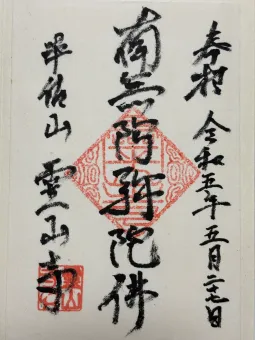 奉拝 令和五年五月二十七日
南無阿弥陀佛
佑山 霊山寺